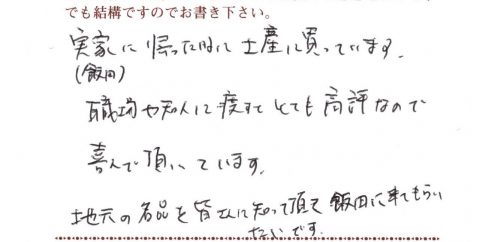 でも結構ですのでお書き下さい。
実家に帰った時に土産に買っています。
(飯田)
職場や知人に渡すととても高評なので
喜んで頂いています。
地元の名品を皆さんに知って頂き飯田に来てもらい
たいです。